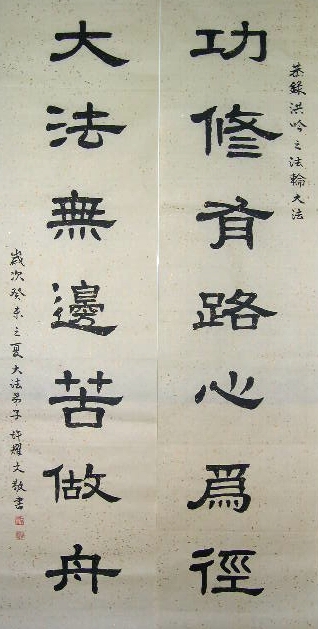 恭錄洪吟之法輪大法
功修有路心爲徑
大法無邊苦做舟
歲次癸未之夏大法弟子許耀文敬書